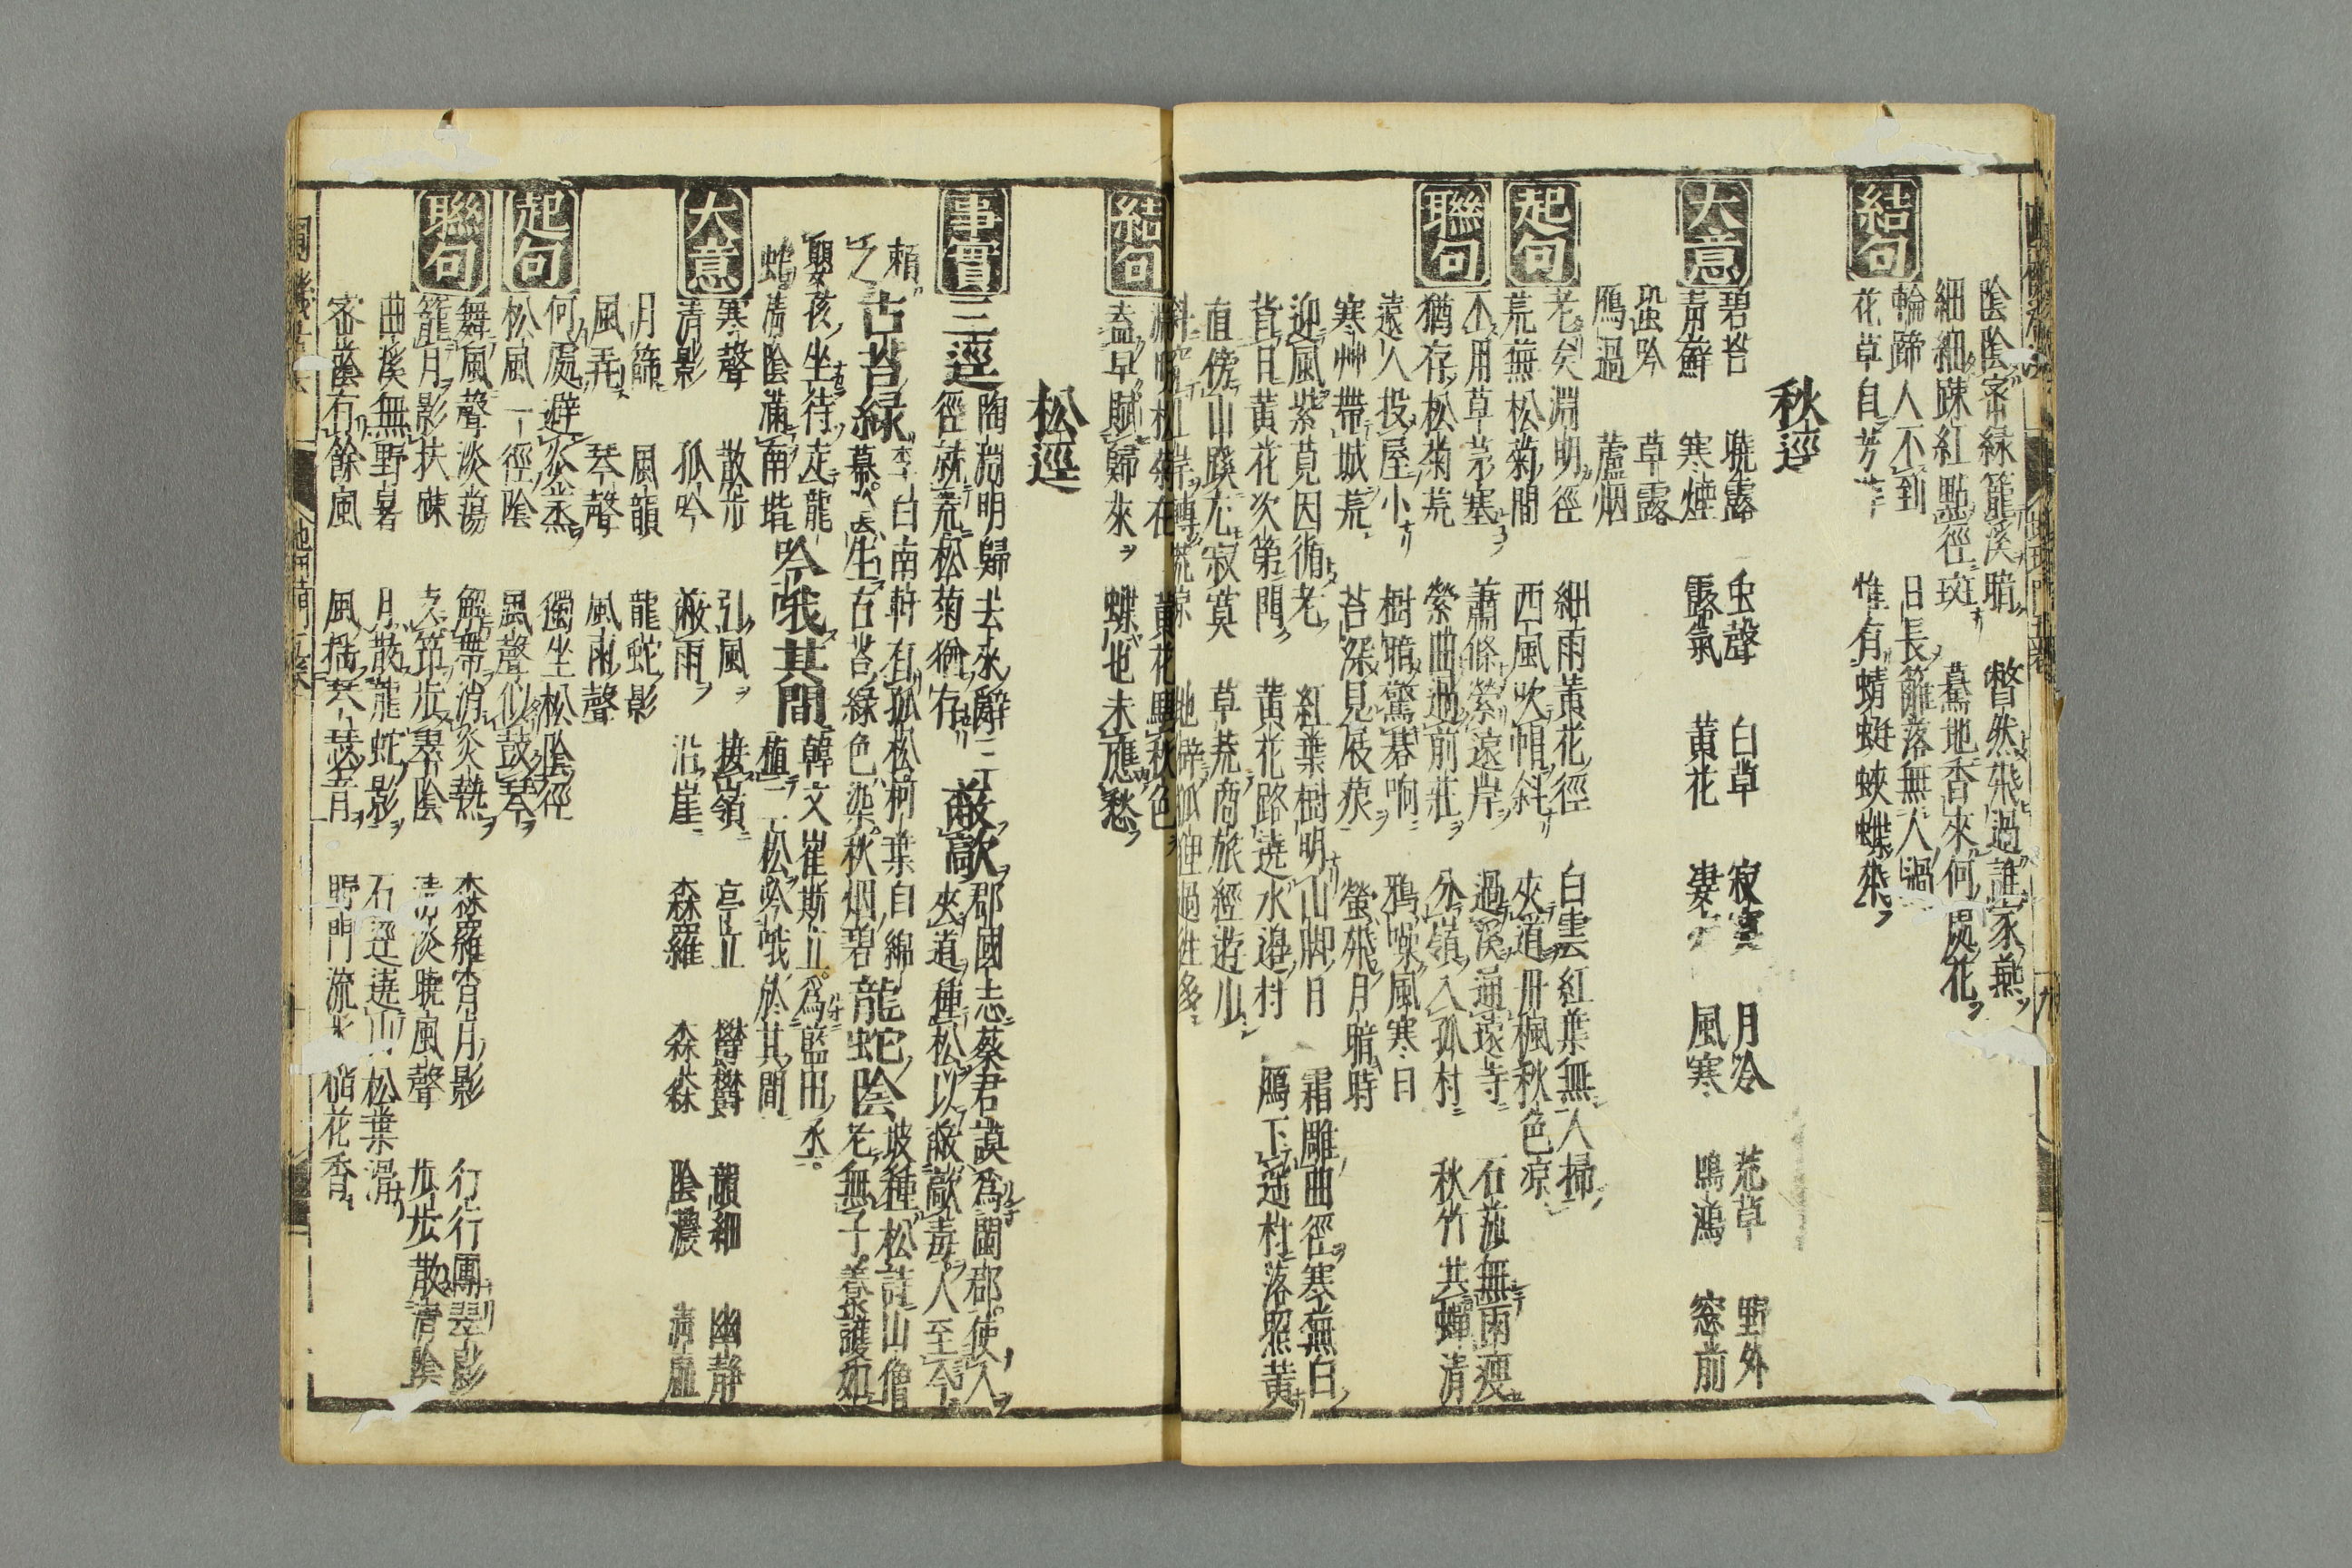 陰陰密緑籠溪暗 瞥然飛過誰家燕
細細踈紅點徑斑 驀地香來何處花
結句
輪蹄人不到 日長籬落無人過
花草自芳菲 惟有蜻蜓蛺蝶飛
秋逕
大意
碧苔 曉露 虫聲 白草 寂寞 月冷 荒草 野外
青蘚 寒煙 露氣 黄花 風寒 鳴鴻 窓前
蛩吟 草露
鴈過 蘆烟
起句
老矣淵明徑 細雨黄花徑 白雲紅葉無人掃
荒無松菊間 西風吹帽斜 夾道丹楓秋色凉
聯句
不用草茅塞 蕭條縈遠岸 過溪通遠寺 石蓏無雨瘦
猶存松菊荒 縈曲過前莊 分嶺入孤村 秋竹共蟬清
遠人投屋小 樹暗驚碁响 鴉噪風寒日
寒艸帶城荒 苔深見屐痕 螢飛月暗時
迎風紫莧因循老 紅葉樹明山脚月 霜雕曲徑寒無白
背日黄花次第開 黄花路遶水邊村 鴈下遥村落照黄
直傍山蹊尤寂寞 草荒商旅經遊少
斜 紅岸轉荒凉 地僻狐狸過往多
結句
淵明松菊在 黄花興秋色
盍早賦歸來 蝶也未應愁
松逕
事實
三逕 陶淵明歸去來辭三
徑就荒松菊猶存 蔽歊 郡國志蔡君謨為閩郡使人
夾道種松以蔽歊毒人至今
賴
之 古苔緑 李白南軒有孤松柯葉自綿
羃生古苔緑色染秋烟碧 龍蛇陰 坡種松詩山僧
老無子養護如
嬰孩坐待走龍
蛇清陰滿南堦 吟哦其間 韓文崔斯立為藍田丞
植一松吟哦於其間
大意
寒聲 散步 引風 接嶺 亭立 欝欝 韻細 幽静
清影 孤吟 蔽雨 沿崖 森羅 森森 陰濃 清虚
月篩 風韻 龍蛇影
風弄 琴聲 風雨聲
起句
何處避炎蒸 獨坐松陰徑
松風一徑陰 風聲似鼓琴
聯句
舞風聲淡蕩 解帶消炎熱 森羅宵月影 行行團翠影
籠月影扶疎 支筇步翠陰 清淡曉風聲 步步散清陰
曲溪無野暑 月散龍蛇影 石逕遶山松葉滑
密蔭有餘風 風揺琴瑟音 野門流水稻花香